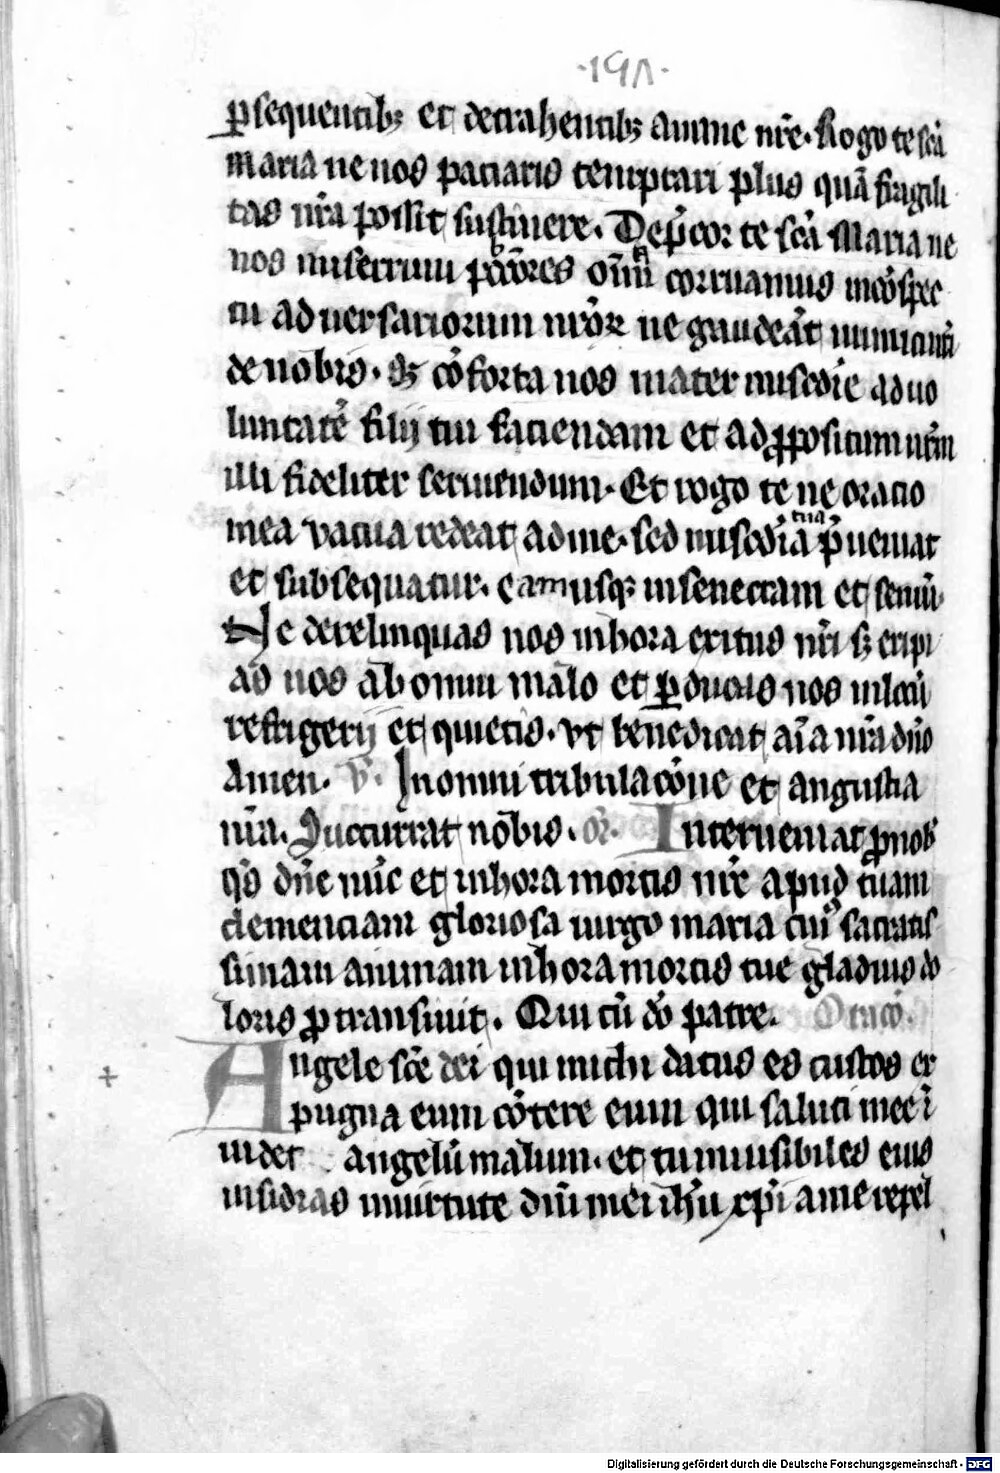 ·191·
ꝑsequentibꝫ et detrahentibꝫ anime nr̄e· Rogo te scā
maria ne nos paciaris temptari plus quā fragili
tas nr̄a possit sustinere· Dep̄cor te scā Maria ne
nos miserrimi pccōres corruamus in cōspec
tu adversariorum nrōꝝ ne gaudeāt inimici nr̄i
de nobis· sꝫ cōforta nos mater misc̄die ad uo
luntatē filij tui faciendam et ad ꝓpositum
illi fideliter seruiendum· Et rogo te ne oracio
mea vacua redeat ad me· sed misc̄dīa tua p̄ueniat
et subsequatur· eam usqꝫ in senectam et seniū·
Ne derelinquas nos in hora exitus nr̄i sꝫ eripi
as nos ab omni malo et ꝑducas nos in locū
refrigerij et quietis· vt benedicat aīa nr̄a dn̄o
Amen· v̄· In omni tribulacōne et angustia
nr̄a· Succurrat nobis· or̄· Interueniat ꝓ nob̄
qs̄ dn̄e nūc et in hora mortis nr̄e apud tuam
clemenciam gloriosa uirgo maria cui᷒ sacratis
simam animam in hora mortis tue gladius do
loris ꝑtransiuit· Qui cū dō patre· Oracō·
Angele scē dei qui michi datus es custos ex
pugna eum cōtere eum qui saluti mee ī
uidet angelū malum· et tu inuisibiles eius
insidias in uirtute dn̄i mei ih̄u xp̄i a me repel